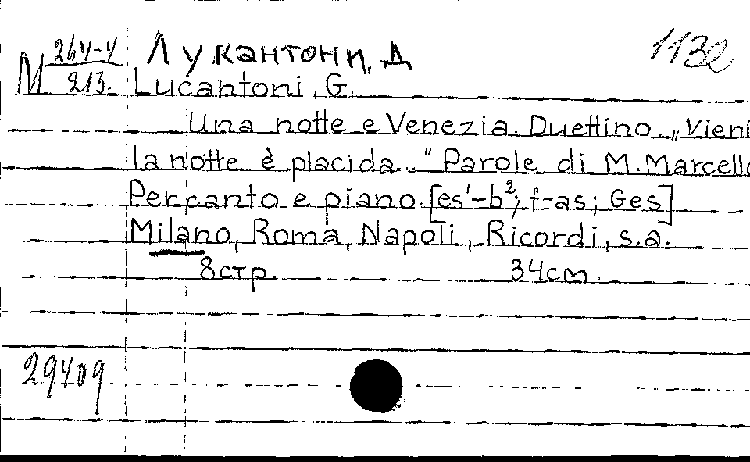 М 264-4/213.
Лукантони, Д
1132
Lucantoni, G.
Una notte e Venezia. Duettino. „Vieni
la notte è placida..." Parole di M. Marcello
Per canto e piano. [es¹-b²; f-as; Ges]
Milano, Roma, Napoli, Ricordi, s.a.
8 стр. 34 см.
29409